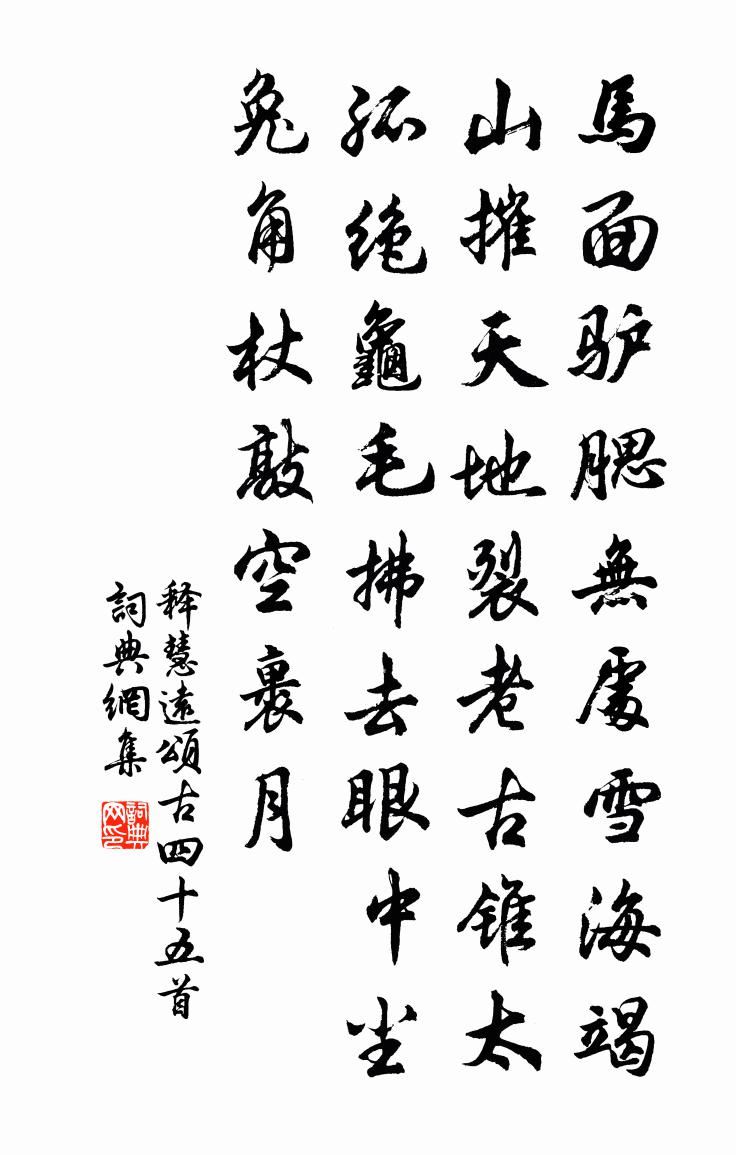 馬面驴腮無處雪海竭
山摧天地裂老古錐太
孤绝龜毛拂去眼中尘
兔角杖敲空裏月
释慧遠頌古四十五首
詞典網集
詞典网印